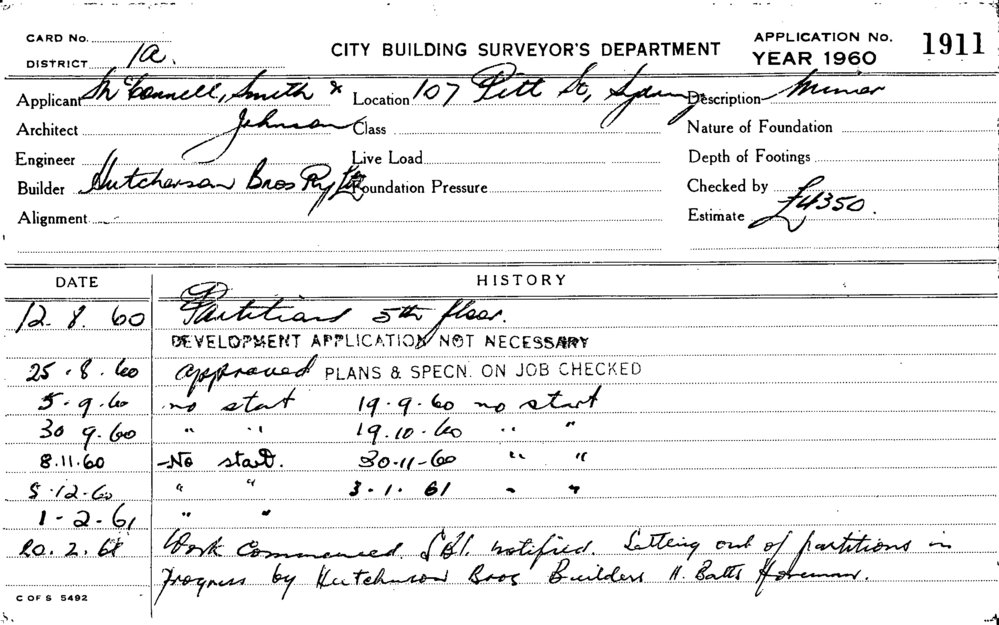 CARD No. CITY BUILDING SURVEYOR'S DEPARTMENT APPLICATION No. 1911
DISTRICT 1a. YEAR 1960
Applicant McConnell, Smith & Location 107 Pitt St, Sydney Description Minor
Architect Johnson Class Nature of Foundation
Engineer Live Load Depth of Footings
Builder Hutcherson Bros Pty Ltd Foundation Pressure Checked by
Alignment Estimate £4350.
DATE HISTORY
12. 8. 60 Partitions 5th floor.
DEVELOPMENT APPLICATION NOT NECESSARY
25.8.60 approved PLANS & SPECN. ON JOB CHECKED
5.9.60 no start 19.9.60 no start
30 9.60 " " 19.10.60 " "
8.11.60 No start. 30-11-60 " "
5.12.60 " " 3.1.61 " "
1-2-61 " "
20.2.61 Work commenced notified. Setting out of partitions in
progress by Hutchinson Bros Builders H. Batts Foreman.
C OF S 5492